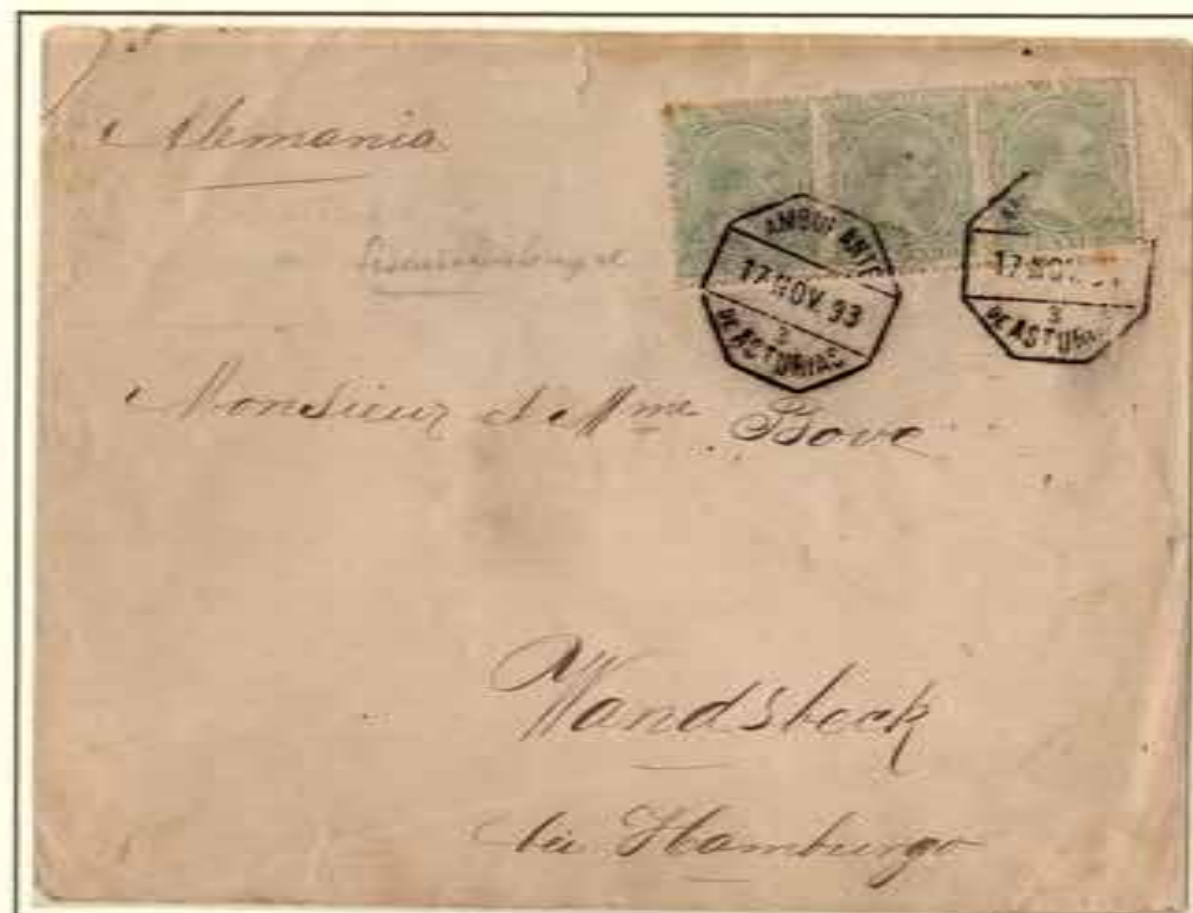 Alemania
AMBULANTE
17 NOV. 93
3
DE ASTURIAS
17 NOV.
3
DE ASTURIAS
Monsieur et Mme Bove
Wandsbeck
via Hamburgo